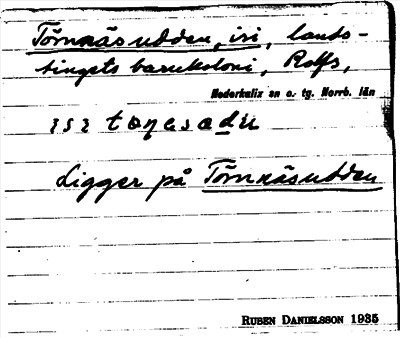 Törnnäsudden, iri, lands-
tingets barnkoloni, Rolfs,
Nederkalix sn o. tg. Norrb. län
Ligger på Törnnäsudden
RUBEN DANIELSSON 1935